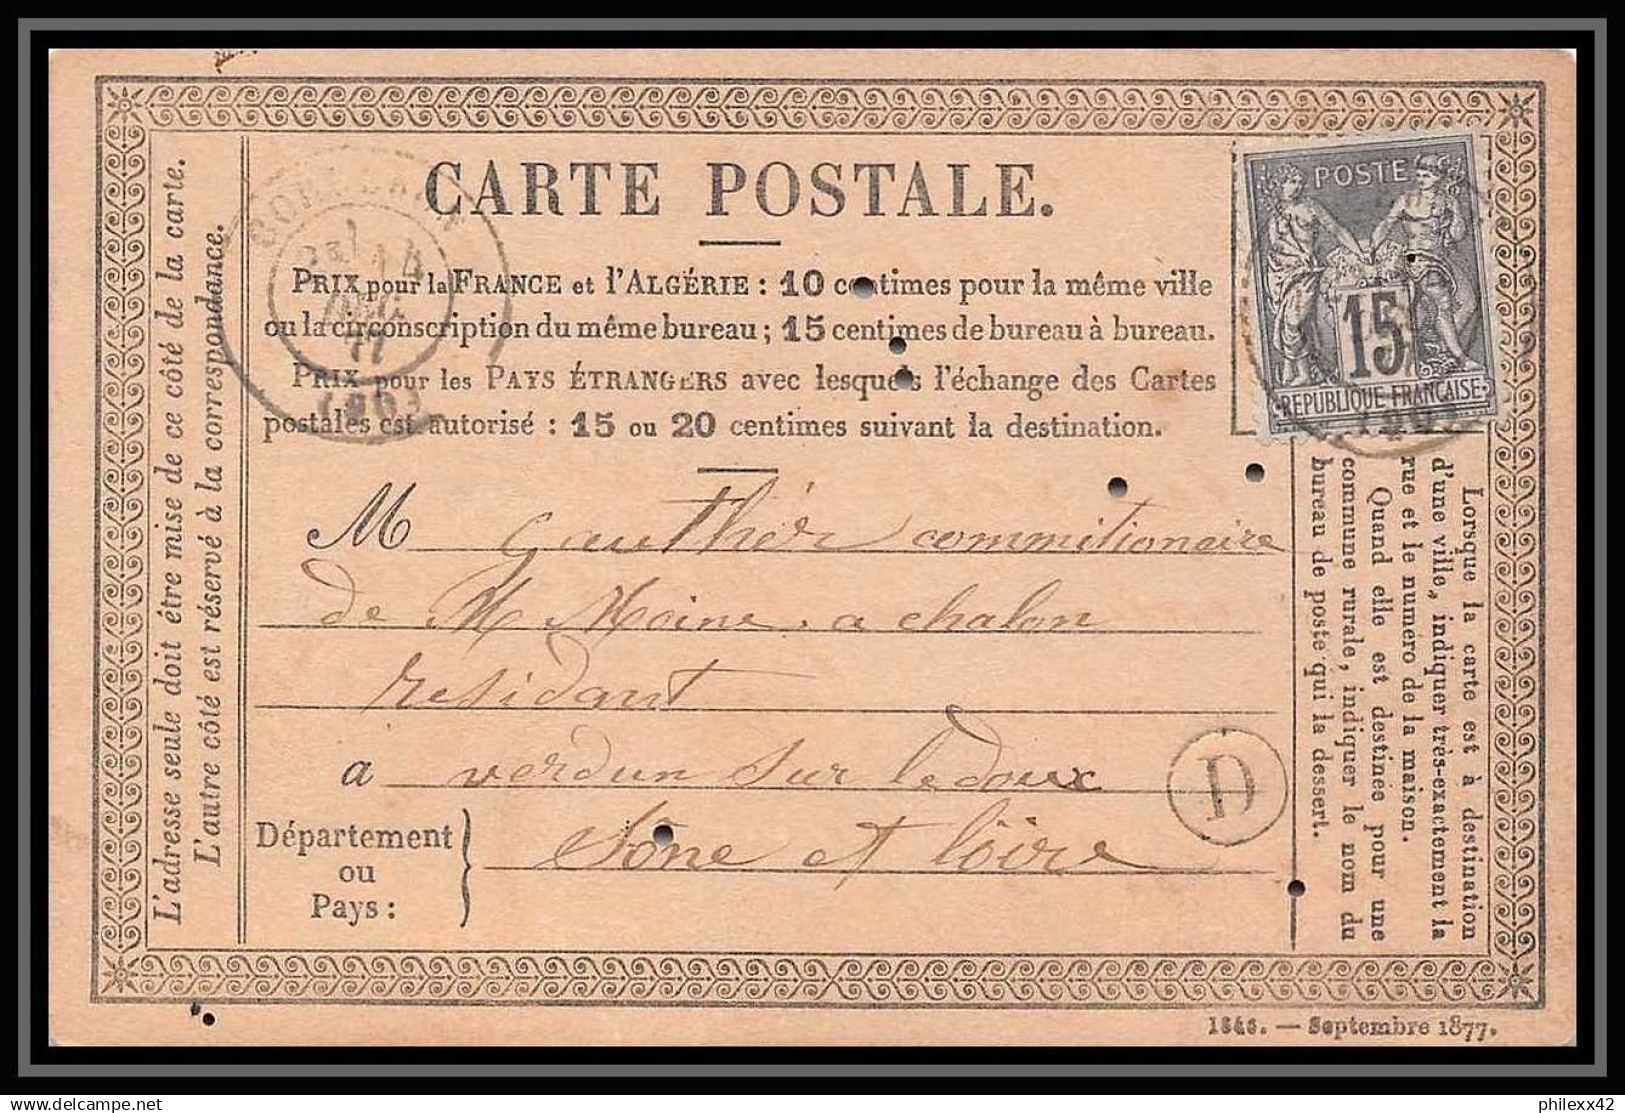 CARTE POSTALE.
PRIX pour la FRANCE et l'ALGÉRIE : 10 centimes pour la même ville
ou la circonscription du même bureau ; 15 centimes de bureau à bureau.
PRIX pour les PAYS ÉTRANGERS avec lesquels l'échange des Cartes
postales est autorisé : 15 ou 20 centimes suivant la destination.
POSTE
15
REPUBLIQUE FRANÇAISE
M Gauthier commitionaire
de M Moine a chalon
residant
à verdun sur le doux
Département
ou
Pays :
Sône et loire
D
L'adresse seule doit être mise de ce côté de la carte.
L'autre côté est réservé à la correspondance.
Lorsque la carte est à destination
d'une ville, indiquer très-exactement la
rue et le numéro de la maison.
Quand elle est destinée pour une
commune rurale, indiquer le nom du
bureau de poste qui la dessert.
1846. — Septembre 1877.
delcampe.net
philexx42